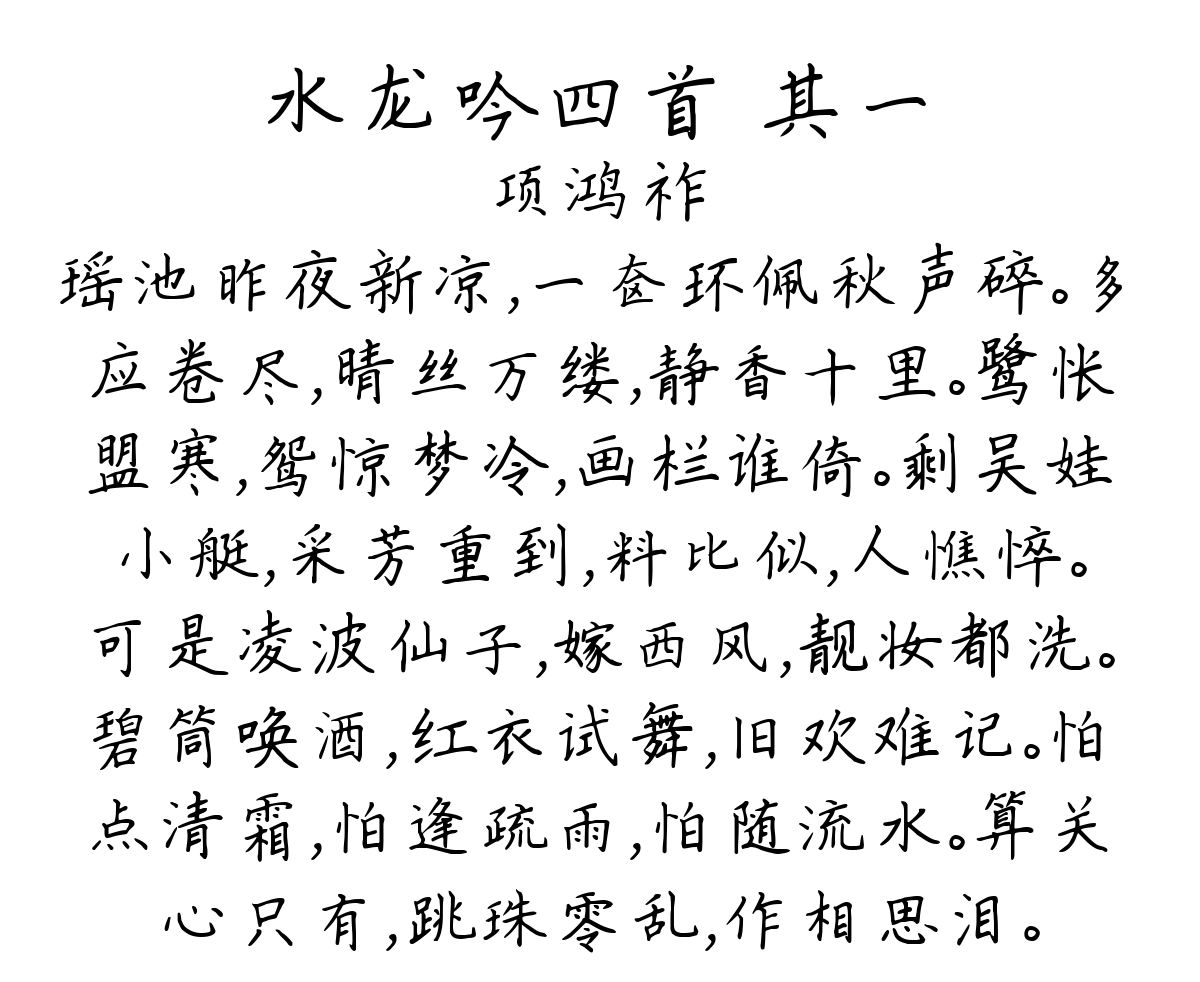 水龙吟四首 其一
项鸿祚
瑶池昨夜新凉,一奁环佩秋声碎。多
应卷尽,晴丝万缕,静香十里。鹭怅
盟寒,鸳惊梦冷,画栏谁倚。剩吴娃
小艇,采芳重到,料比似,人憔悴。
可是凌波仙子,嫁西风,靓妆都洗。
碧筒唤酒,红衣试舞,旧欢难记。怕
点清霜,怕逢疏雨,怕随流水。算关
心只有,跳珠零乱,作相思泪。